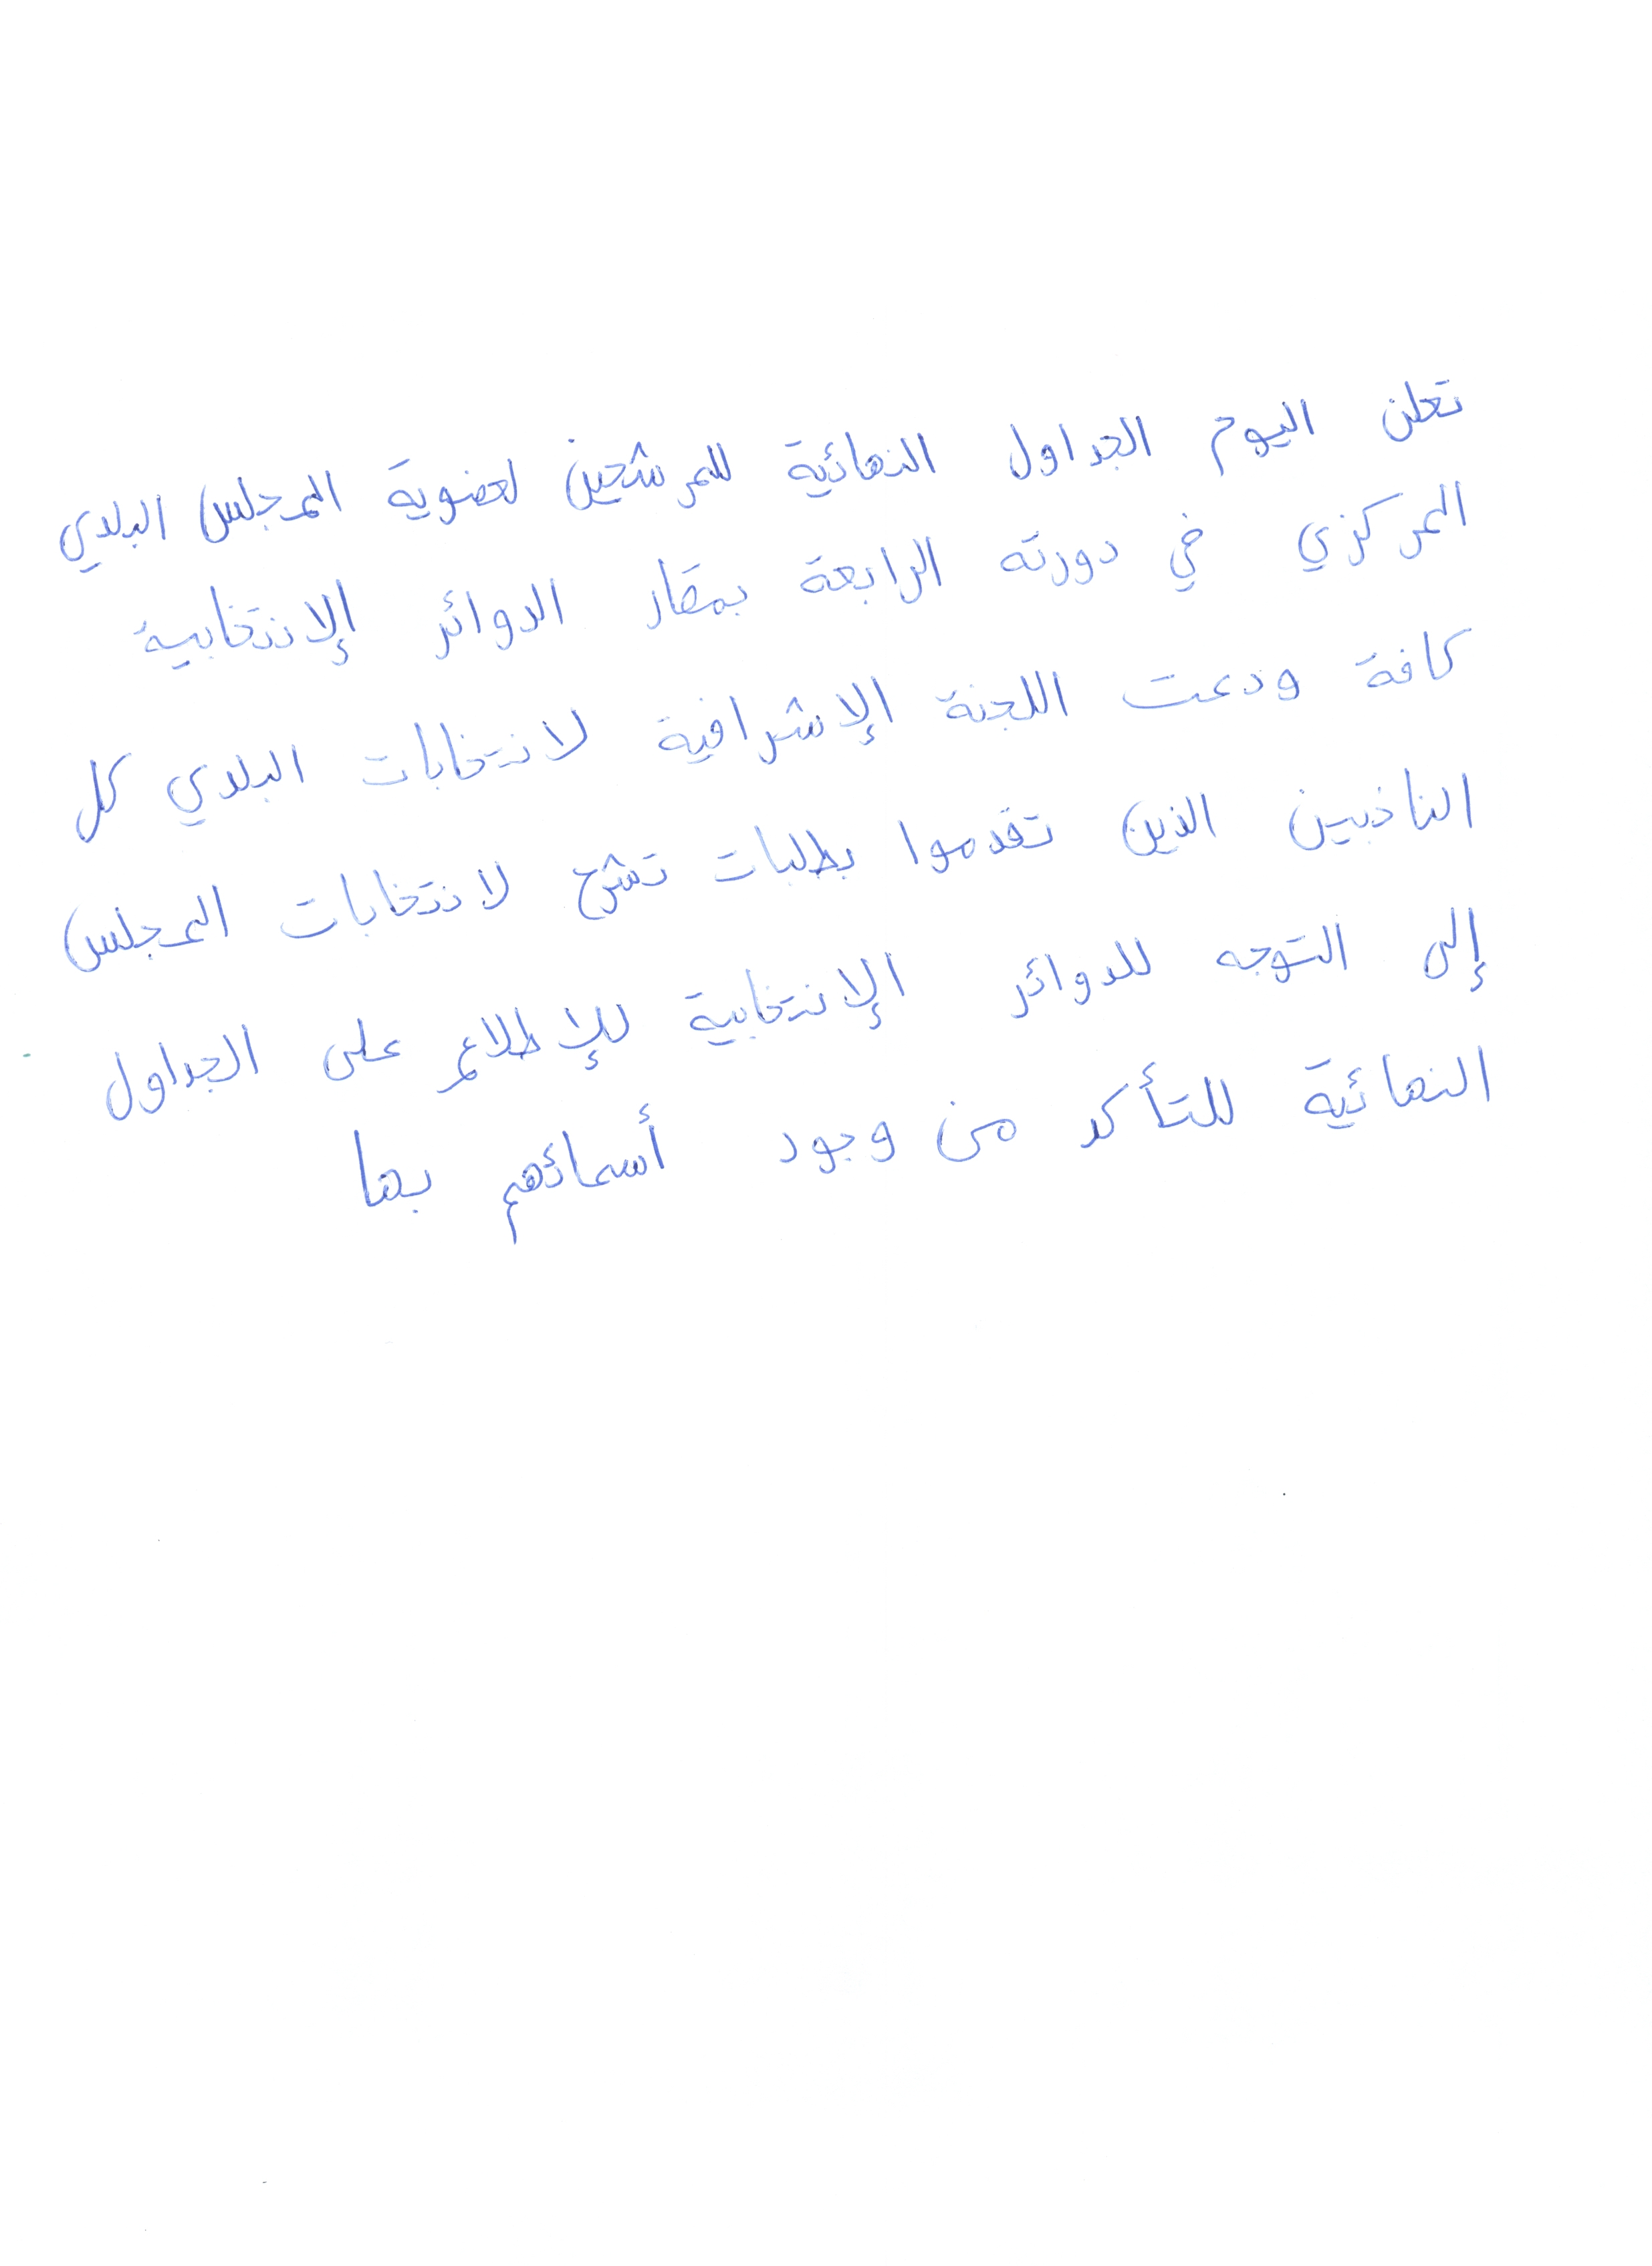 تعلن اليوم الجداول النهائية للمرشحين لعضوية المجلس البلدي
المركزي في دورته الرابعة بمقار الدوائر الإنتخابية
كافة ودعت اللجنة الإشرافية لانتخابات البلدي كل
الناخبين الذين تقدموا بطلبات ترشح لانتخابات المجلس
إلى التوجه للدوائر الإنتخابية للإطلاع على الجداول
النهائية للتأكد من وجود أسمائهم بها